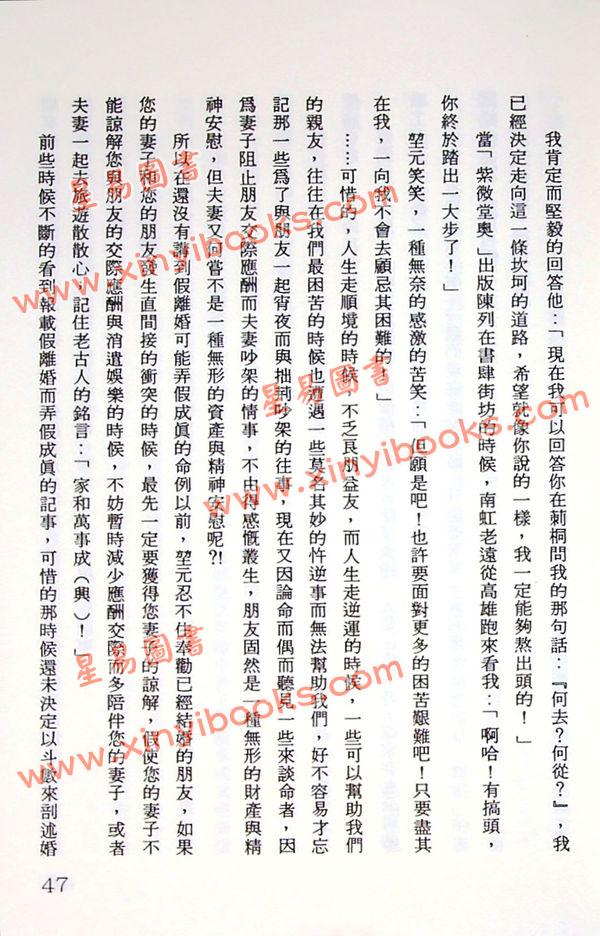 我肯定而堅毅的回答他：「現在我可以回答你在莿桐問我的那句話：『何去？何從？』，我
已經決定走向這一條坎坷的道路，希望就像你說的一樣，我一定能夠熬出頭的！」
當「紫微堂奧」出版陳列在書肆街坊的時候，南虹老遠從高雄跑來看我：「啊哈！有搞頭，
你終於踏出一大步了！」
堃元笑笑，一種無奈的感激的苦笑：「但願是吧！也許要面對更多的困苦艱難吧！只要盡其
在我，一向我不會去顧忌其困難的！」
……可惜的，人生走順境的時候，不乏良朋益友，而人生走逆運的時候，一些可以幫助我們
的親友，往往在我們最困苦的時候也遭遇一些莫名其妙的忤逆事而無法幫助我們，好不容易才忘
記那一些爲了與朋友一起宵夜而與拙荊吵架的往事，現在又因論命而偶而聽見一些來談命者，因
爲妻子阻止朋友交際應酬而夫妻吵架的情事，不由得感慨叢生，朋友固然是一種無形的財產與精
神安慰，但夫妻又回嘗不是一種無形的資產與精神安慰呢?!
所以在還沒有講到假離婚可能弄假成眞的命例以前，堃元忍不住奉勸已經結婚的朋友，如果
您的妻子和您的朋友發生直間接的衝突的時候，最先一定要獲得您妻子的諒解，假使您的妻子不
能諒解您與朋友的交際應酬與消遣娛樂的時候，不妨暫時減少應酬交際而多陪伴您的妻子，或者
夫妻一起去旅遊散散心，記住老古人的銘言：「家和萬事成（興）！」
前些時候不斷的看到報載假離婚而弄假成眞的記事，可惜的那時候還未決定以斗數來剖述婚
47
星易圖書
www.xinyibooks.com
星易圖書
www.xinyibooks.com
星易圖書
www.xinyibooks.com